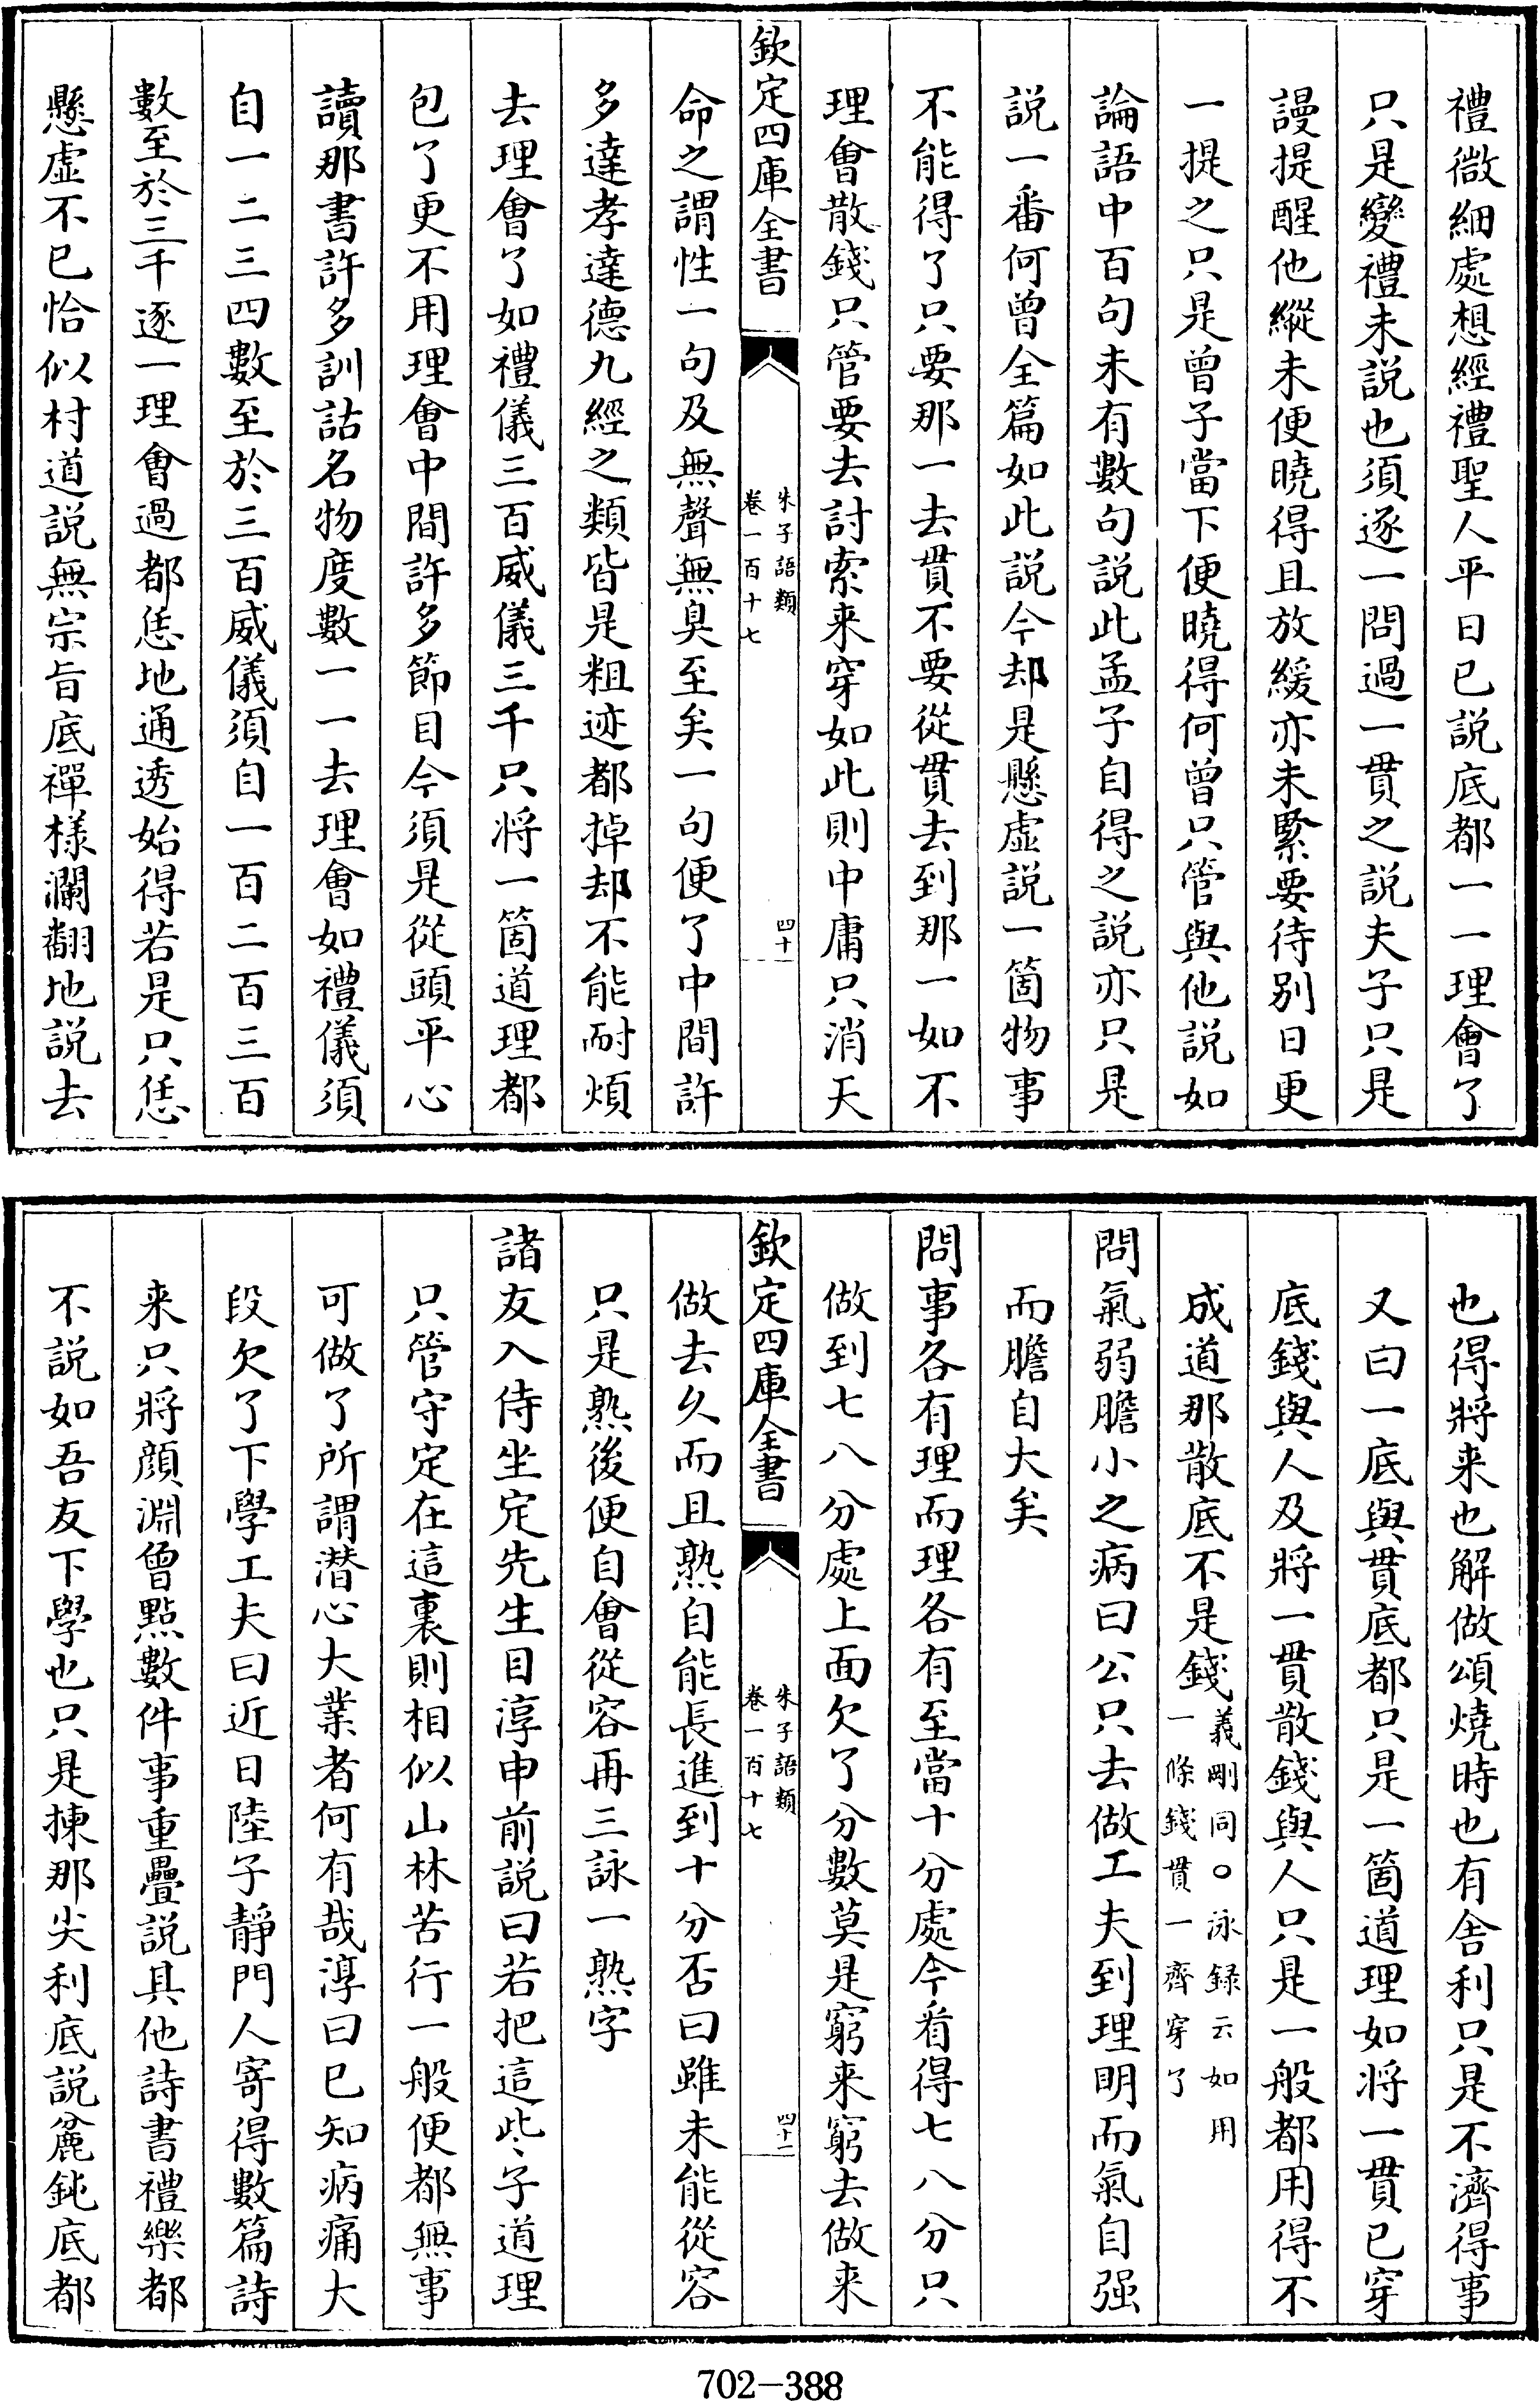 禮微細處想經禮聖人平日已説底都一一理會了
只是變禮未説也須逐一問過一貫之説夫子只是
謾提醒他縱未便曉得且放緩亦未緊要待别日更
一提之只是曾子當下便曉得何曾只管與他説如
論語中百句未有數句説此孟子自得之説亦只是
説一番何曾全篇如此説今却是懸虚説一箇物事
不能得了只要那一去貫不要從貫去到那一如不
理會散錢只管要去討索来穿如此則中庸只消天
欽定四庫全書
朱子語類
卷一百十七
四十
命之謂性一句及無聲無臭至矣一句便了中間許
多達孝達德九經之類皆是粗迹都掉却不能耐煩
去理會了如禮儀三百威儀三千只将一箇道理都
包了更不用理會中間許多節目今須是從頭平心
讀那書許多訓詁名物度數一一去理會如禮儀須
自一二三四數至於三百威儀須自一百二百三百
數至於三千逐一理會過都恁地通透始得若是只恁
懸虚不已恰似村道説無宗旨底禪樣瀾翻地説去
也得將来也解做頌燒時也有舍利只是不濟得事
又曰一底與貫底都只是一箇道理如将一貫已穿
底錢與人及將一貫散錢與人只是一般都用得不
成道那散底不是錢
義剛同○泳録云如用
一條錢貫一齊穿了
問氣弱膽小之病曰公只去做工夫到理明而氣自强
而膽自大矣
問事各有理而理各有至當十分處今看得七八分只
做到七八分處上面欠了分數莫是窮来窮去做来
欽定四庫全書
朱子語類
卷一百十七
四十一
做去久而且熟自能長進到十分否曰雖未能從容
只是熟後便自會從容再三詠一熟字
諸友入侍坐定先生目淳申前説曰若把這些子道理
只管守定在這裏則相似山林苦行一般便都無事
可做了所謂潛心大業者何有哉淳曰已知病痛大
段欠了下學工夫曰近日陸子靜門人寄得數篇詩
来只將顔淵曾點數件事重疊説其他詩書禮樂都
不説如吾友下學也只是揀那尖利底説麄鈍底都
702-388